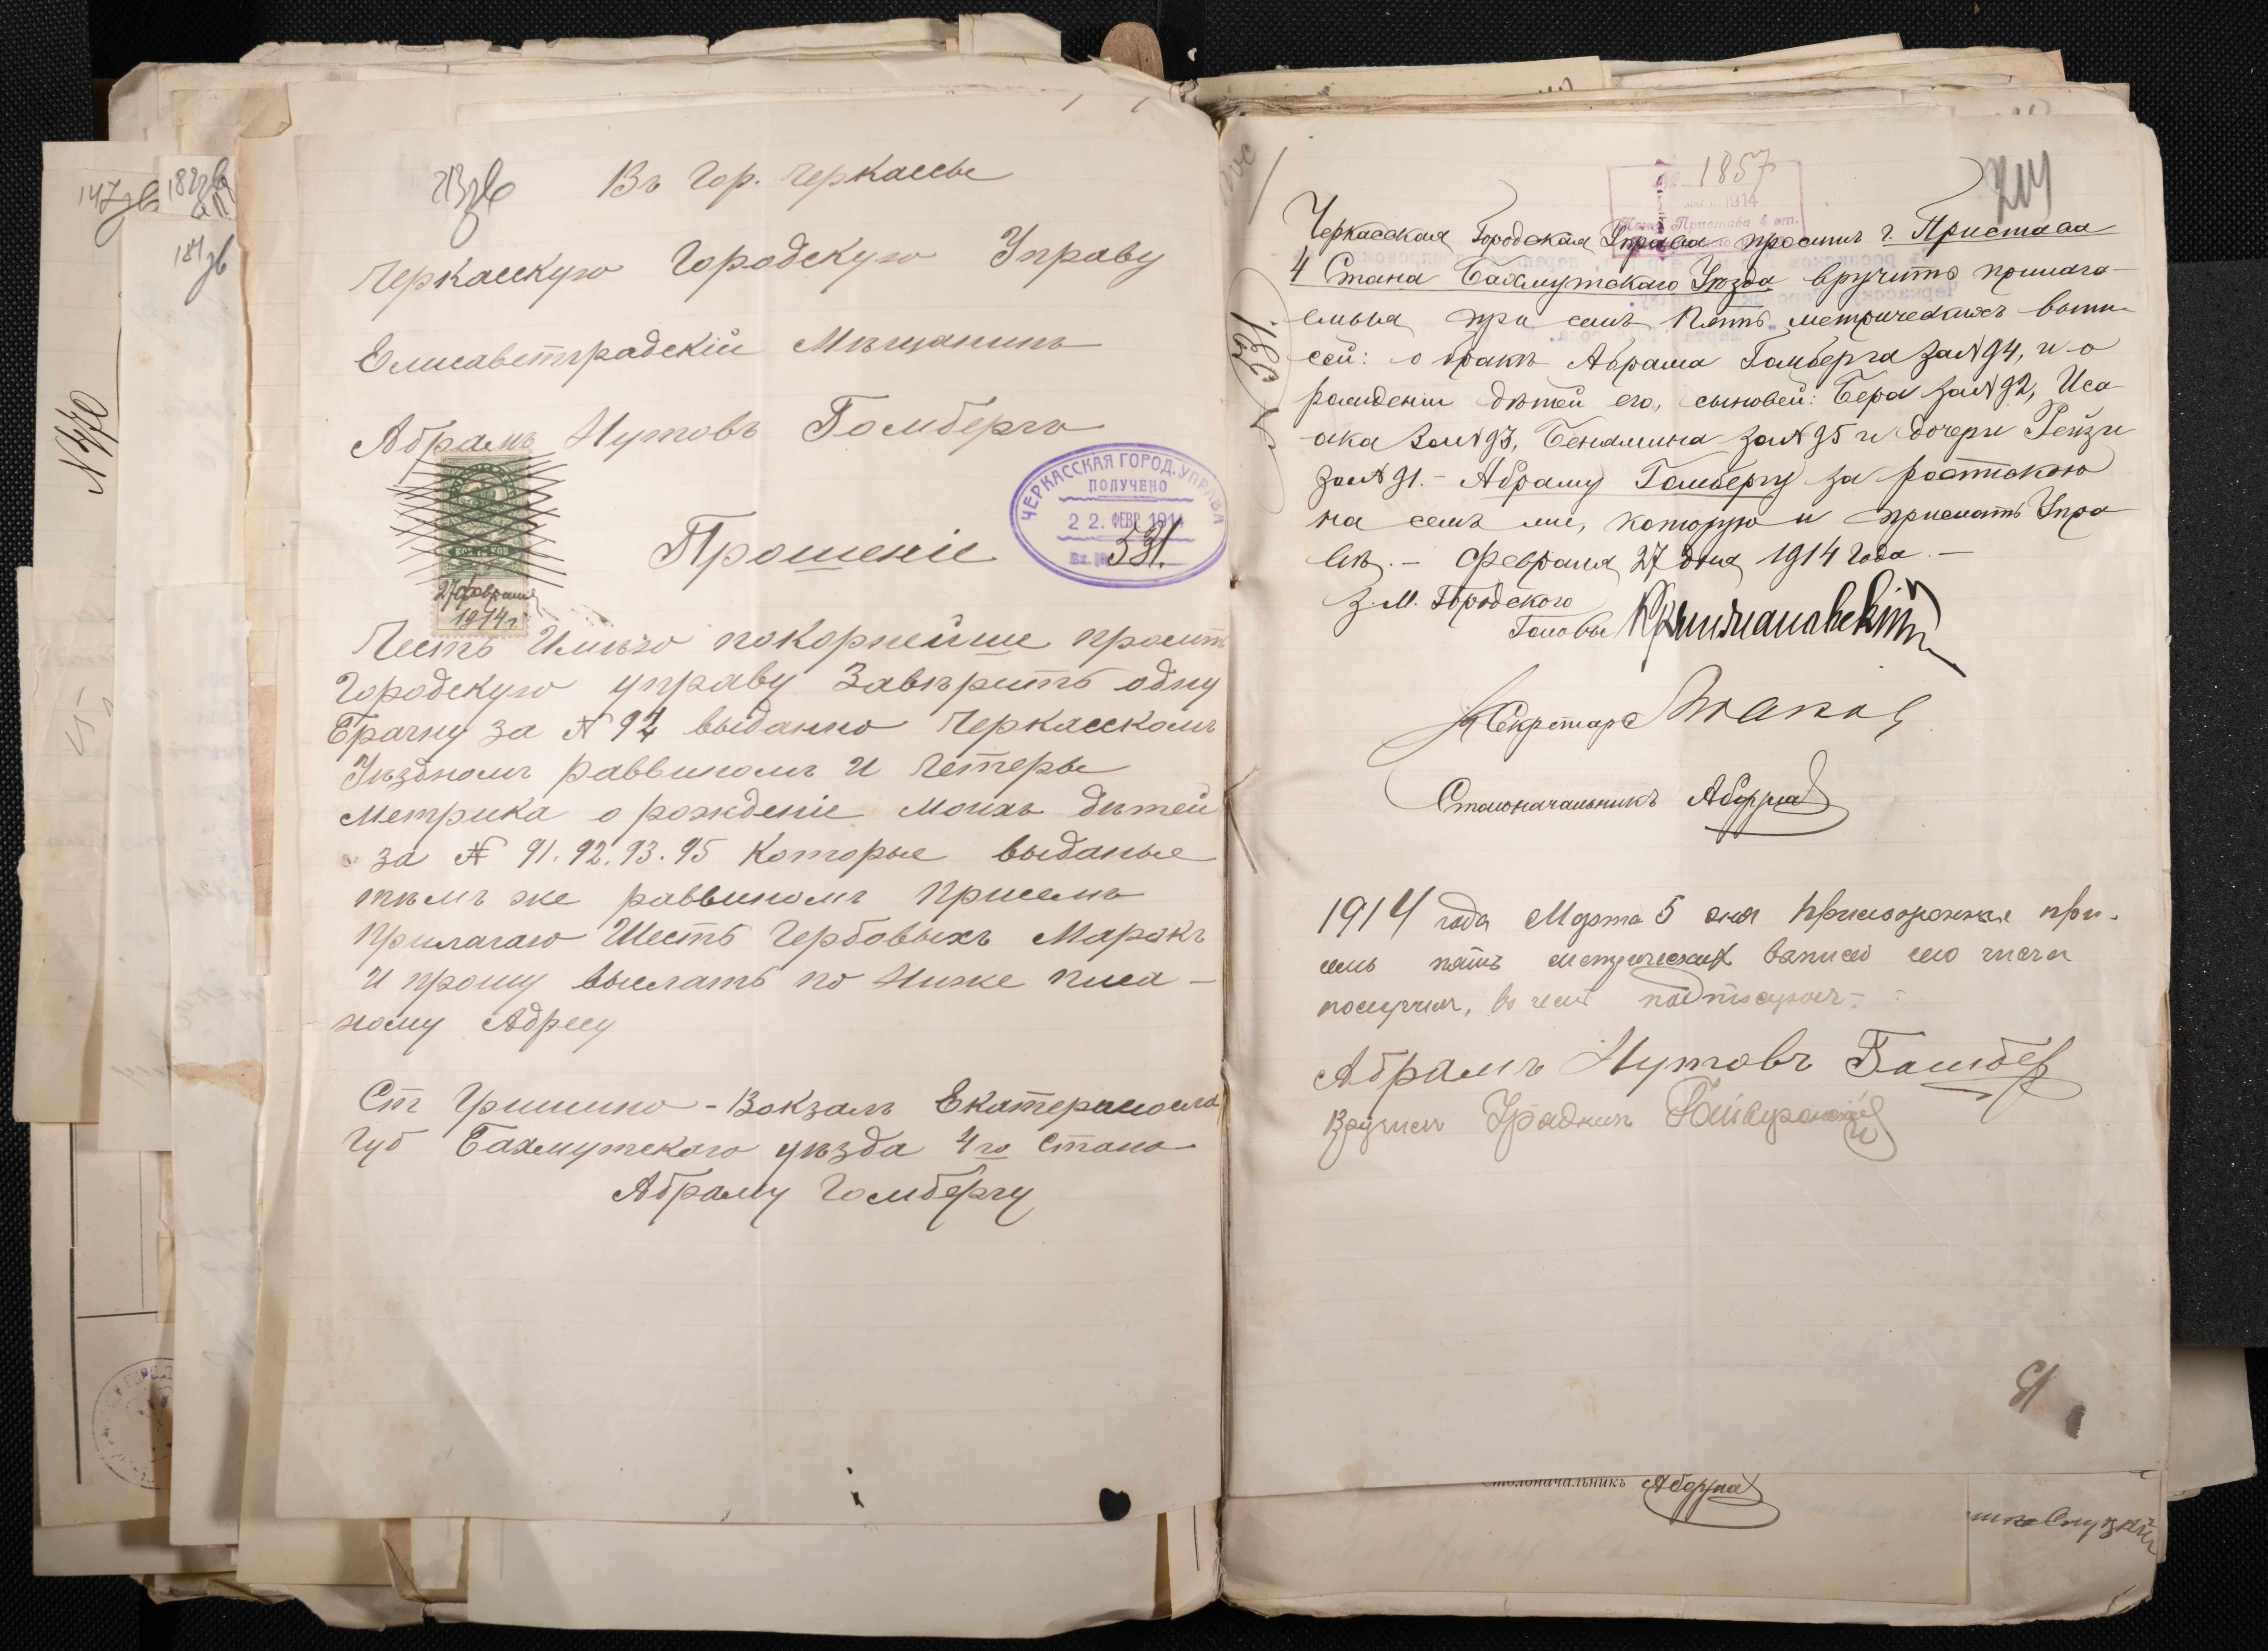 147 зв
182 зв
181 зв
N 370
213 зв
Въ Гор. Черкассы
Черкасскую Городскую Управу
Елисаветградскій Мѣщанинъ
Абрамъ Нутовъ Гомбергъ
ЧЕРКАССКАЯ ГОРОД. УПРАВА
ПОЛУЧЕНО
22. ФЕВР. 1914
Вх. № 531.
Прошеніе
27 февраля
1914 г
Честь Имѣю покорнейше просить
Городскую управу Завѣрить одну
Брачну за N 94 выданно Черкасскомъ
Уѣздномъ раввиномъ и Четеры
Метрика о рожденіе моихъ дѣтей
за N 91. 92. 93. 95 Которые выданые
тѣмъ же раввиномъ Присемъ
Прилагаю Шесть Гербовыхъ Марокъ
и прошу выслать по Ниже писа-
ному Адресу
Ст Гришино - Вокзалъ Екатеринослав
Губ Бахмутского уѣзда 4го Стана
Абраму Гомбергу
214
1857
1914
531.
Черкасская Городская Управа проситъ г. Пристава
4 Стана Бахмутскаго Уѣзда вручить прилага-
емыя при семъ Пять метрическихъ выпи-
сей: о бракѣ Абрама Гомберга за N 94, и о
рожденіи дѣтей его, сыновей: Бера за N 92, Иса-
ака за N 93, Беньямина за N 95 и дочери Рейзи
за N 91. - Абраму Гомбергу за росписккою
на семъ же, которую и прислать Упра-
вѣ. - Февраля 27 дня 1914 года. -
З. М. Городского
Головы
Секретарь
Столоначальникъ
1914 года Марта 5 дня Присворонные при-
семъ пять метрическихъ записей сего числа
получилъ, въ чемъ подписуюсь.
Абрамъ Нутовъ Гомбер
Вручилъ Урядникъ
Столоначальникъ